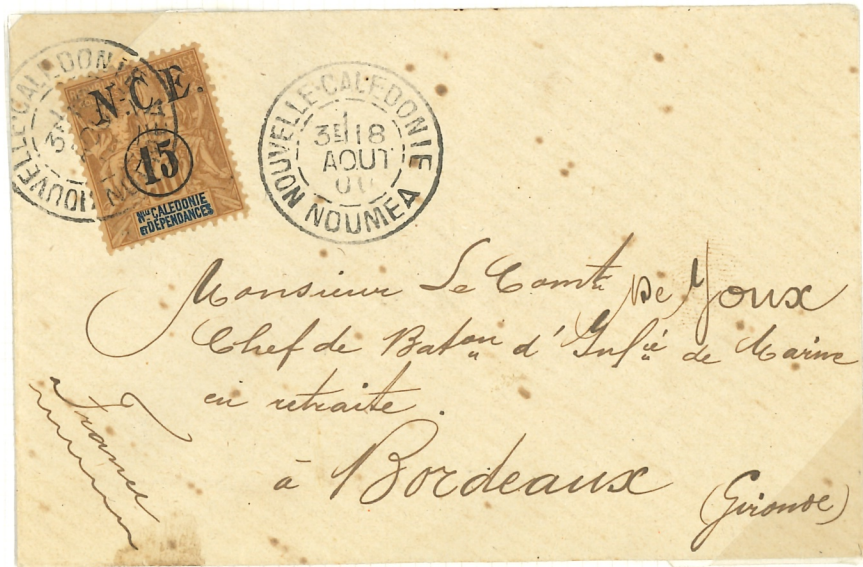 NOUVELLE-CALEDONIE
3E
N.C.E.
15
Nlle CALEDONIE
ET DÉPENDANCES
NOUVELLE-CALEDONIE
3E 18
AOUT
NOUMEA
Monsieur Le Comte de Joux
Chef de Baton d'Infie de Marine
en retraite.
à Bordeaux
(Gironde)
France